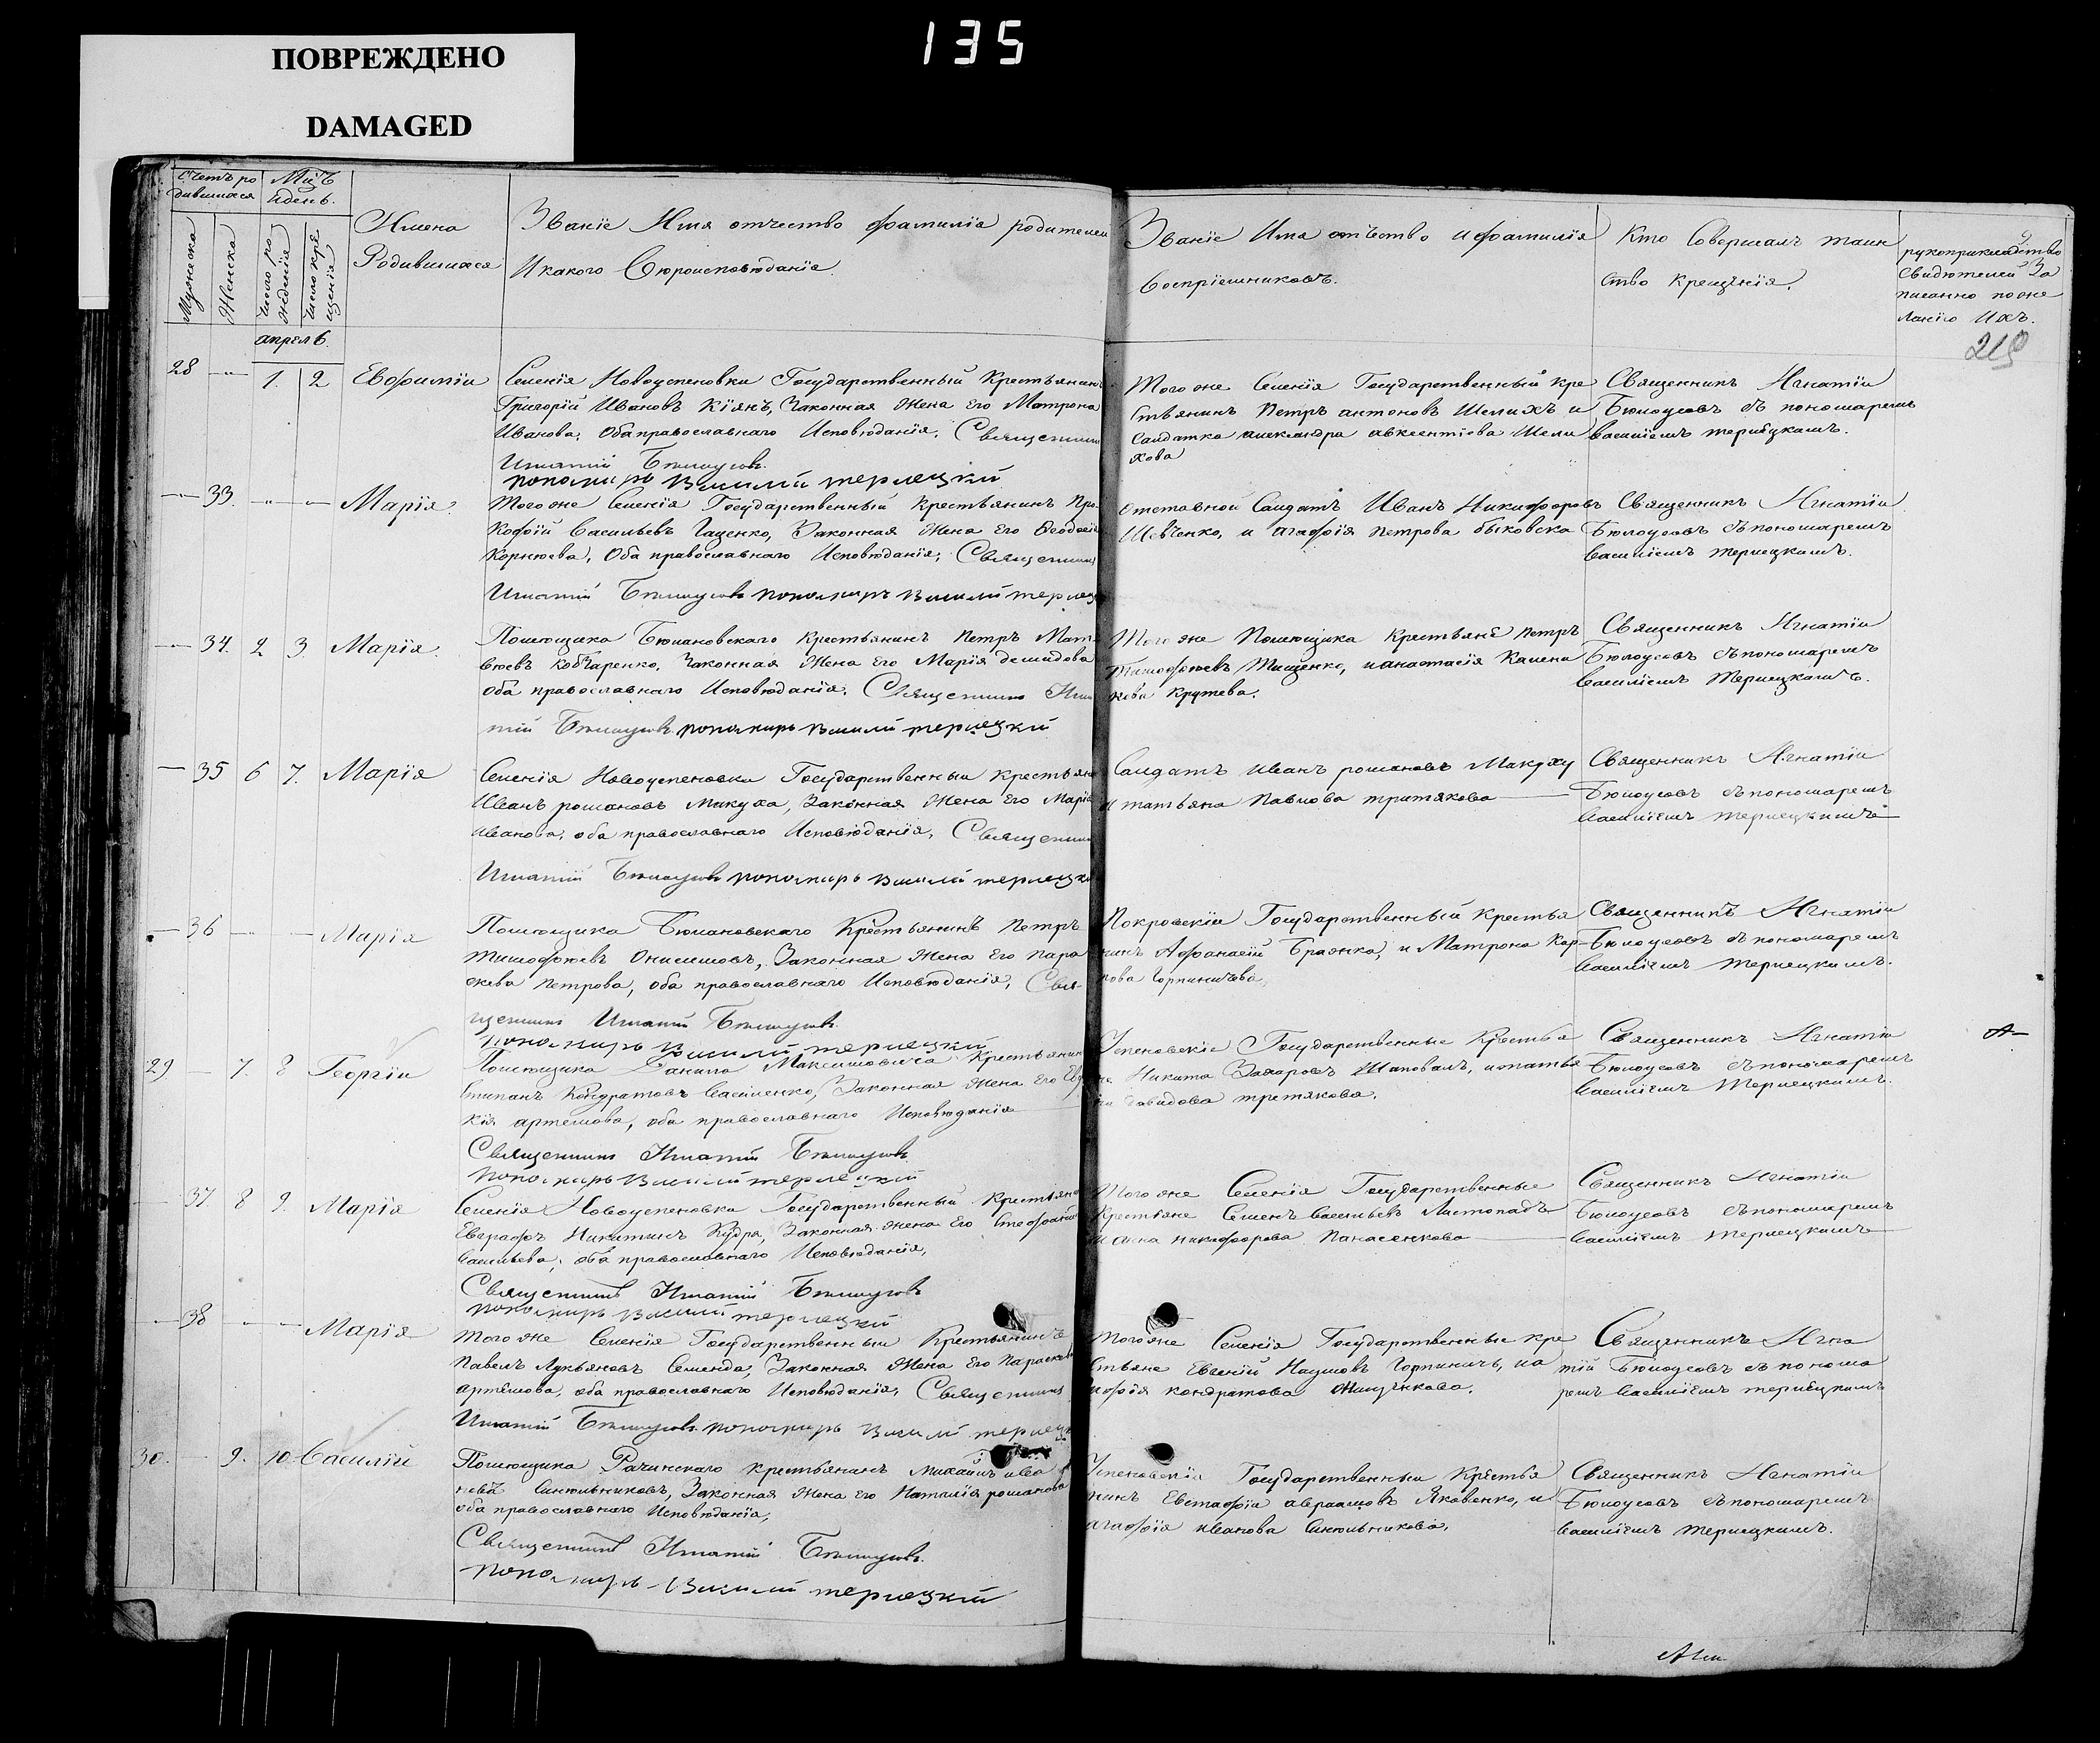 135
ПОВРЕЖДЕНО
DAMAGED
Счетъ ро
дившихся
Мцъ
и день.
Мужеска
Женска
Число ро
жденія
Число кре
щенія
Имена
Родившихся
Званіе Имя отчество фамилія родителей
И какого Вероисповѣданія.
Званіе Имя отчество и фамилія
воспріемниковъ.
Кто Совершалъ таин
ство Крещенія.
рукоприкладство
Свидетелей За
писано по же
ланію Ихъ.
апрель
28 1. 2 Евфимій
Селенія Новоуспеновки Государственный Крестьянинъ
Григорій Ивановъ Кіянъ, Законная Жена Его Матрона
Иванова, Оба православнаго Исповѣданія. Священникъ
Игнатій Бѣлоусовъ.
пономарь Василій терлецкій
Того же Селенія Государственный Кре
стьянинъ Петръ антоновъ Шелихъ и
Салдатка александра авксентіева Шели
хова
Священникъ Игнатій
Бѣлоусовъ съ пономаремъ
василіемъ терлецкимъ.
33. Марія.
Того же Селенія Государственный Крестьянинъ Про
кофій Васильевъ Гаценко, Законная Жена Его Феодосія
Корнѣева, Оба православнаго Исповѣданія, Священникъ
Игнатій Бѣлоусовъ пономарь Василій терлец
отставной Салдатъ Иванъ Никифоровъ
Шевченко, и агафія Петрова быковска
Священникъ Игнатій
Бѣлоусовъ съ пономаремъ
василіемъ терлецкимъ.
34. 2 3. Марія.
Помѣщика Бѣлановскаго крестьянинъ Петръ Мат
вѣевъ Кобчаренко, Законная Жена Его Марія демидова
оба православнаго Исповѣданія. Священникъ Игна
тій Бѣлоусовъ пономарь Василій терлецкій
Того же Помѣщика Крестьяне Петръ
Тимофѣевъ Тищенко, и анастасія
Крутева.
Священникъ Игнатій
Бѣлоусовъ съ пономаремъ
Василіемъ Терлецкимъ.
35 6 7. Марія
Селенія Новоуспеновки Государственный крестьян
Иванъ романовъ Макуха, Законная Жена Его Марія
иванова, оба православнаго Исповѣданія, Священник
Игнатій Бѣлоусовъ пономарь Василій терлецк
Салдатъ иванъ романовъ Макуху
и татьяна Павлова третякова
Священникъ Игнатій
Бѣлоусовъ съ пономаремъ
василіемъ терлецкимъ
36 Марія
Помѣщика Бѣлановскаго Крестьянинъ Петръ
тимофѣевъ Онисимовъ, Законная Жена Его Пара
скева Петрова, оба православнаго Исповѣданія, Свя-
щенникъ Игнатій Бѣлоусовъ.
пономарь Василій терлецкій
Покровскій Государственный крестья
нинъ Афанасій Бражка, и Матрона Кар-
пова Горпиничева,
Священникъ Игнатій
Бѣлоусовъ съ пономаремъ
Василіемъ терлецкимъ.
29 7. 8 Георгій
Помѣщика Данила Максимовича Крестьянин
Степанъ Кондратовъ Василенко, Законная Жена Его Евдо
кія артемова, оба православнаго Исповѣданія
Священникъ Игнатій Бѣлоусовъ
пономарь Василій терлецкій
Успеновскіе Государственные Крестья
не Никита Захаровъ Шаповалъ, и татья
на давидова третякова.
Священникъ Игнатій
Бѣлоусовъ съ пономаремъ
Василіемъ Терлецкимъ.
37. 8 9. Марія
Селенія Новоуспеновка Государственный Крестьян
Евграфъ Никитинъ Кудра, Законная жена Его Стефани
васильева, оба православнаго Исповѣданія,
Священникъ Игнатій Бѣлоусовъ
пономарь Василій терлецкій
Того же Селенія Государственные
Крестьяне Семенъ Васильевъ Листопадъ
и анна никифорова Панасенкова
Священникъ Игнатій
Бѣлоусовъ съ пономаремъ
василіемъ терлецкимъ
38 Марія
Того же Селенія Государственный Крестьянинъ
Павелъ Лукьяновъ Семенда, Законная Жена Его Параскев
артемова, оба православнаго Исповѣданія, Священникъ
Игнатій Бѣлоусовъ пономарь Василій терлец
Того же Селенія Государственные кре
стьяне Евгеній Наумовъ Горпиничъ, и а
гафія кондратова
Священникъ Игна
тій Бѣлоусовъ съ понома
ремъ Василіемъ терлецкимъ
30. 9. 10 Василій
Помѣщика Рачинскаго крестьянинъ Михаилъ ива
новъ Синельниковъ, Законная Жена Его Наталія романова
оба православнаго Исповѣданія,
Священникъ Игнатій Бѣлоусовъ.
Пономарь Василій терлецкій
Успеновскій Государственный Крестья
нинъ Евстафій авраамовъ Яковенко, и
агафія иванова Синельникова,
Священникъ Игнатій
Бѣлоусовъ съ пономаремъ
василіемъ терлецкимъ.